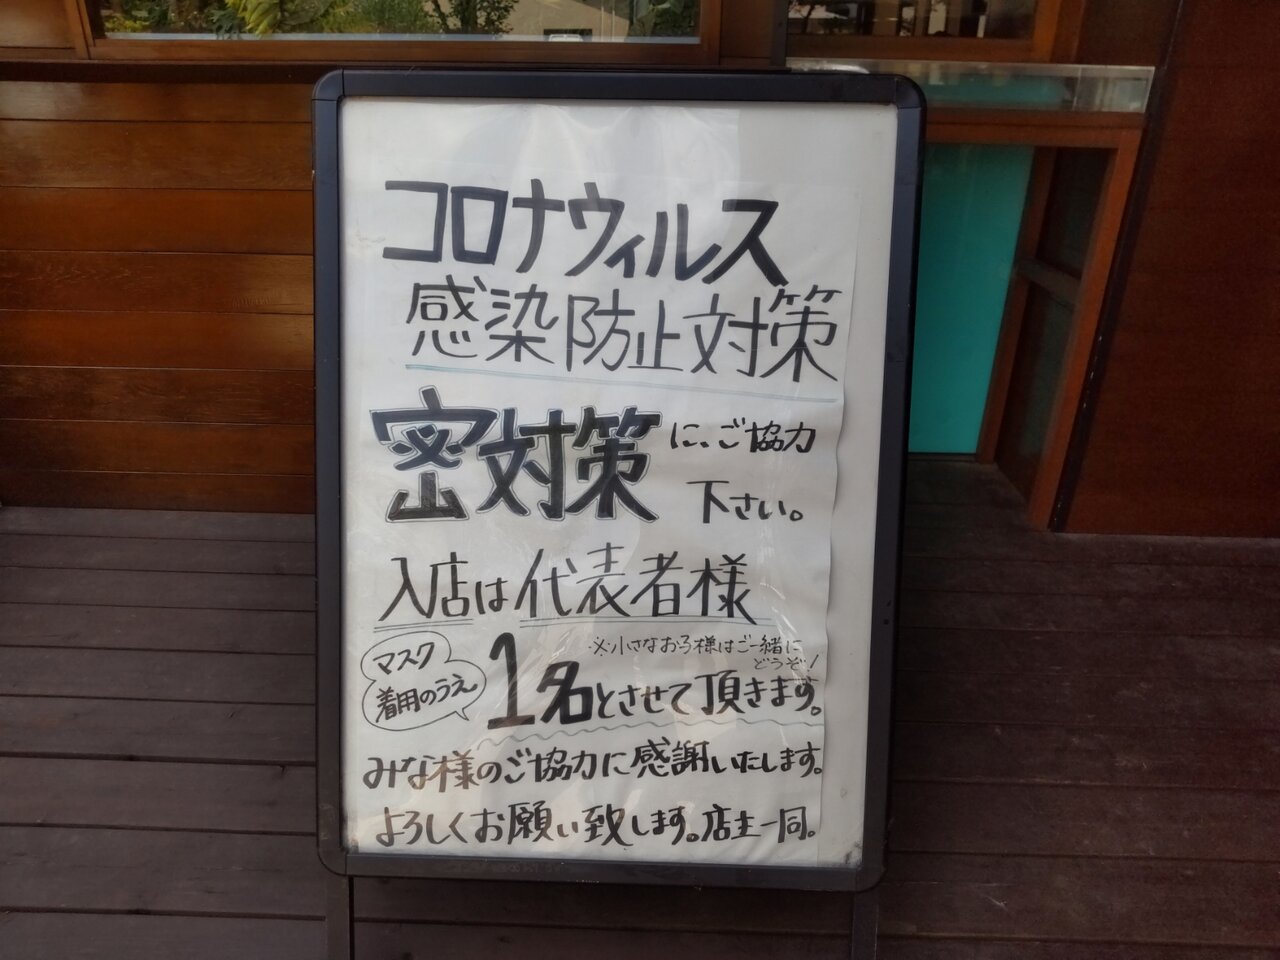 コロナウィルス
感染防止対策
密対策に、ご協力
下さい。
入店は代表者様
※小さなお子様はご一緒に
どうぞ!
マスク
着用のうえ
1名とさせて頂きます。
みな様のご協力に感謝いたします。
よろしくお願い致します。店主一同。